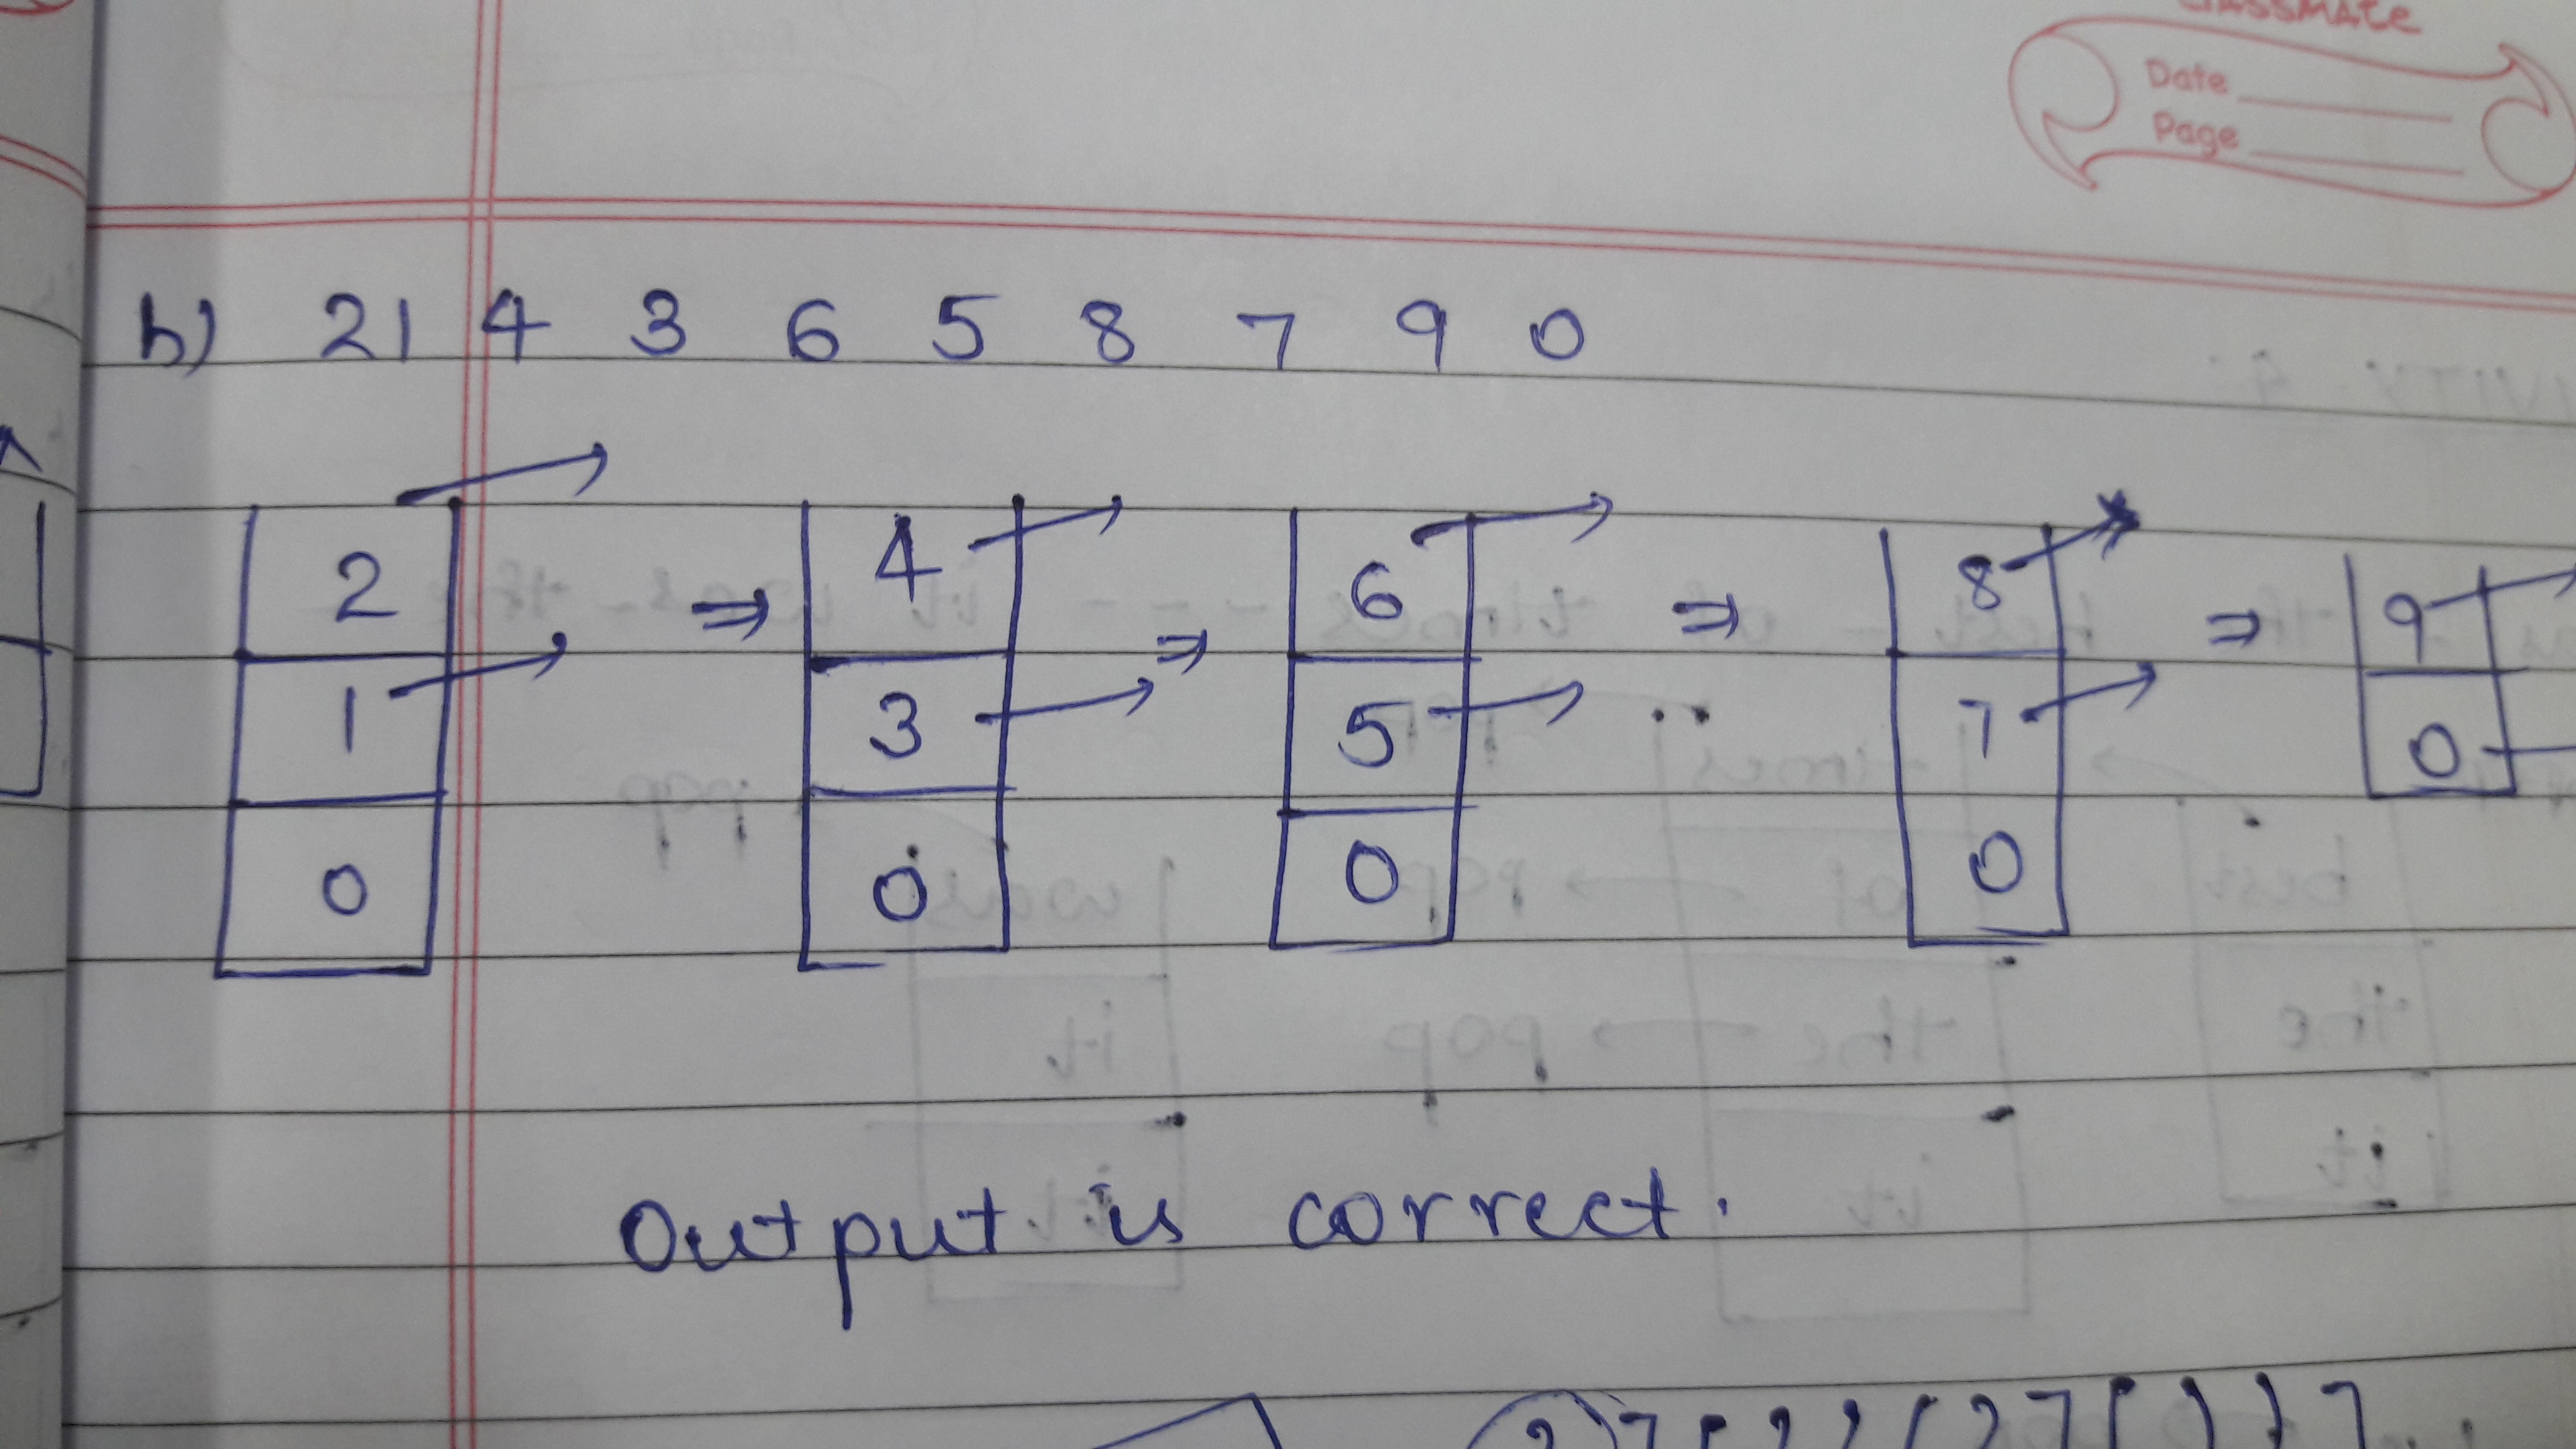 classmate
Date
Page
b) 21 4 3 6 5 8 7 9 0
2 ⇒ 4 ⇒ 6 ⇒ 8 ⇒ 9
1 3 5 7 0
0 0 0 0
Output is correct.